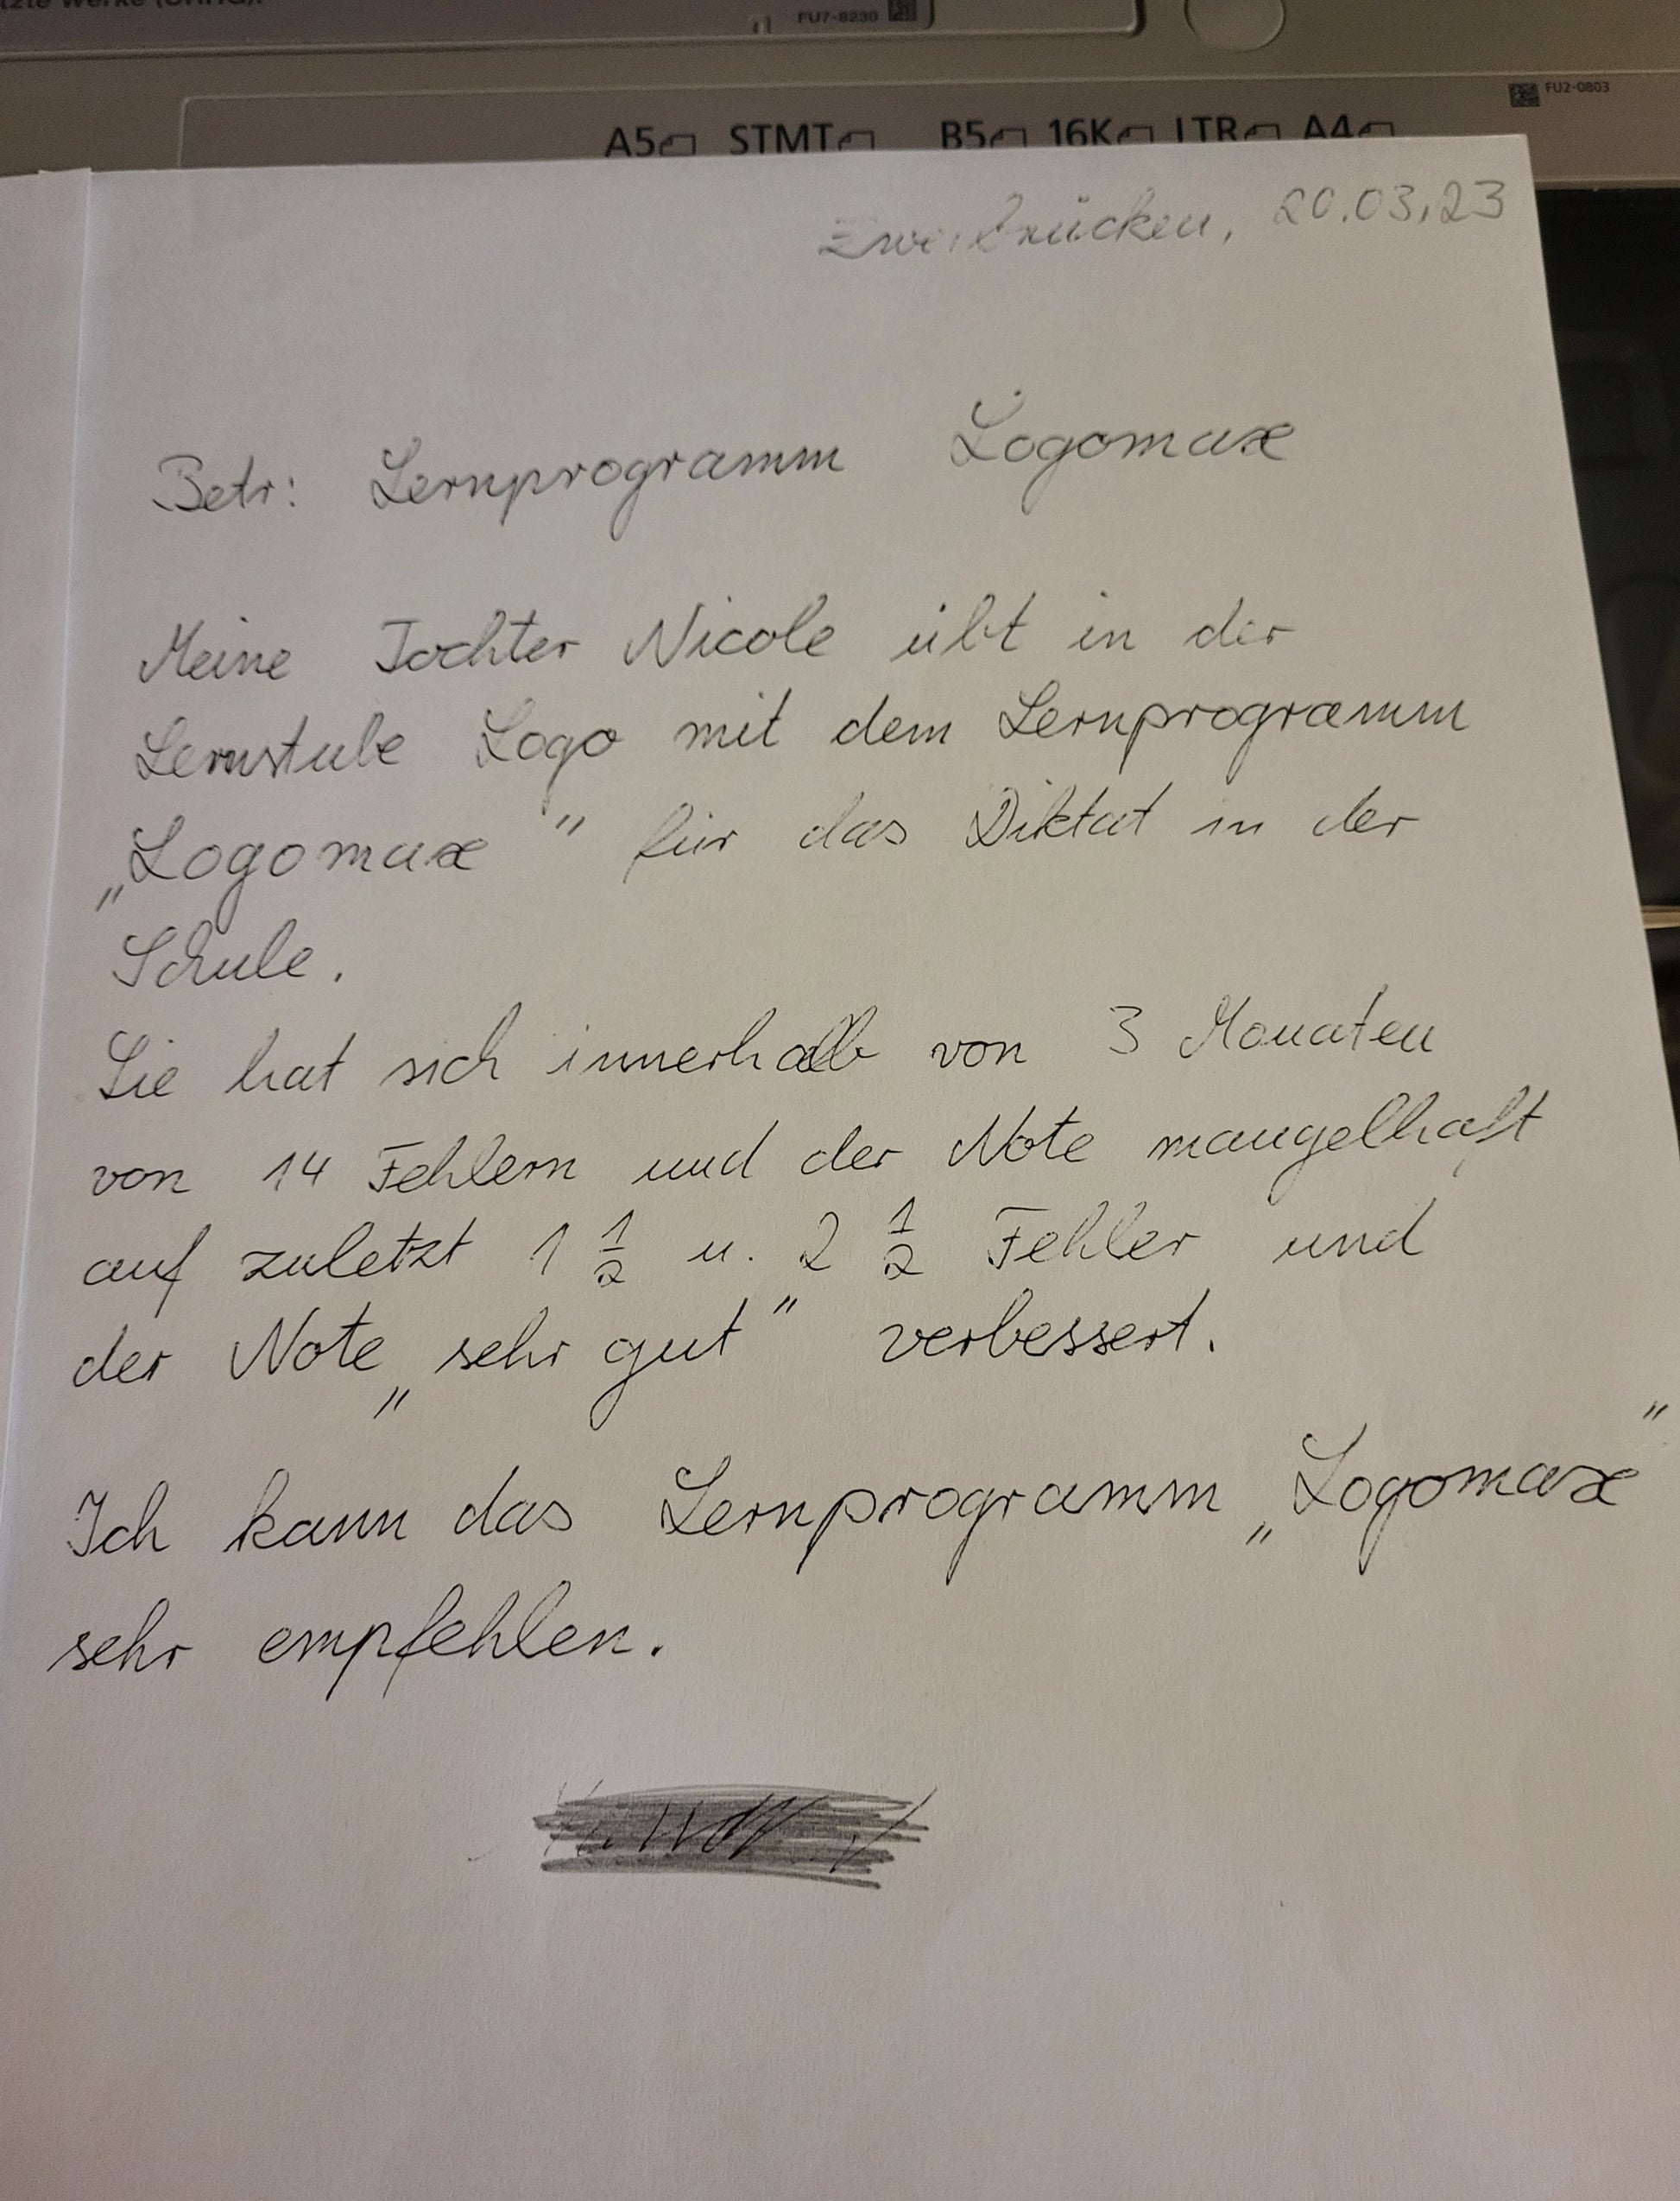 FU7-8230
FU2-0803
A5 STMT B5 16K LTR A4
Zweibrücken, 20.03.23
Betr: Lernprogramm Logomax
Meine Tochter Nicole übt in der
Lernstube Logo mit dem Lernprogramm
„Logomax" für das Diktat in der
Schule.
Sie hat sich innerhalb von 3 Monaten
von 14 Fehlern und der Note mangelhaft
auf zuletzt 1 1/2 u. 2 1/2 Fehler und
der Note „sehr gut" verbessert.
Ich kann das Lernprogramm „Logomax"
sehr empfehlen.